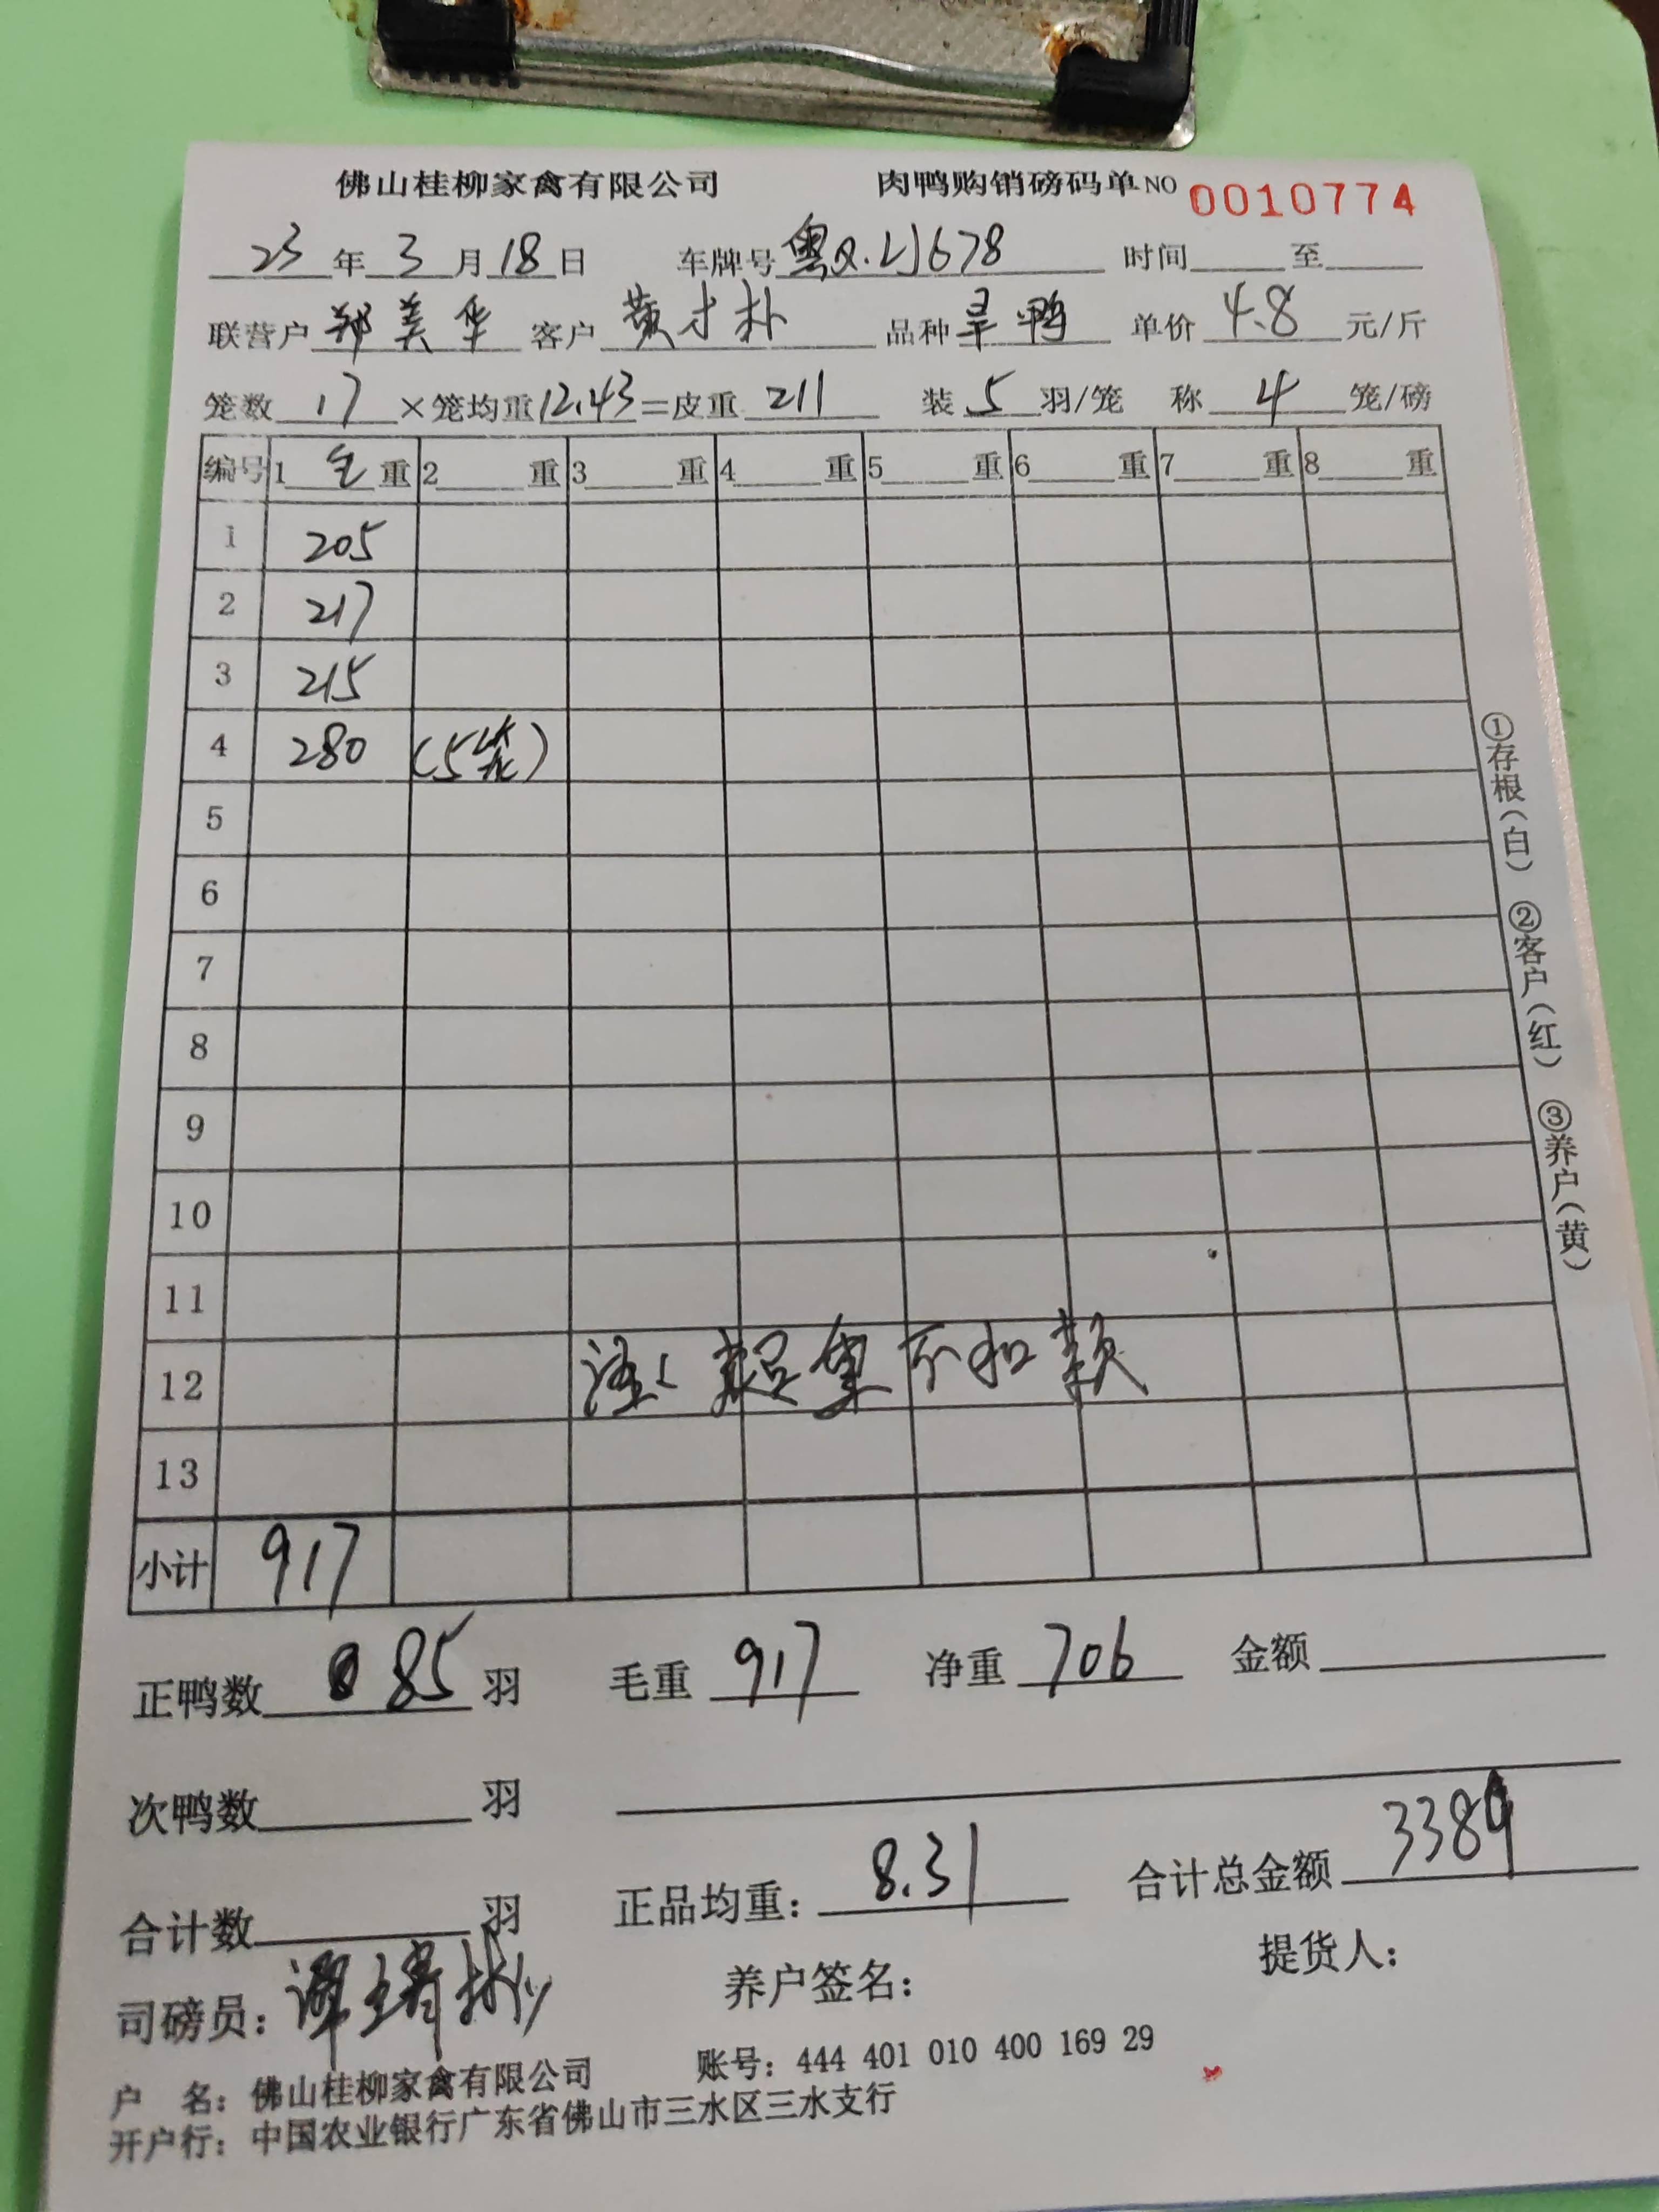 佛山桂柳家禽有限公司 肉鸭购销磅码单 NO 0010774
23年3月18日 车牌号 粤Q·LJ678 时间 至
联营户 郑美华 客户 黄才朴 品种 旱鸭 单价 4.8 元/斤
笼数 17 ×笼均重 12.43 =皮重 211 装 5 羽/笼 称 4 笼/磅
编号 1 毛 重 2 重 3 重 4 重 5 重 6 重 7 重 8 重
1 205
2 217
3 215
4 280 (5笼)
5
6
7
8
9
10
11
12 注: 超重不扣款
13
小计 917
①存根(白) ②客户(红) ③养户(黄)
正鸭数 85 羽 毛重 917 净重 706 金额
次鸭数 羽
合计数 羽 正品均重: 8.31 合计总金额 3389
司磅员: 养户签名: 提货人:
户 名: 佛山桂柳家禽有限公司 账号: 444 401 010 400 169 29
开户行: 中国农业银行广东省佛山市三水区三水支行